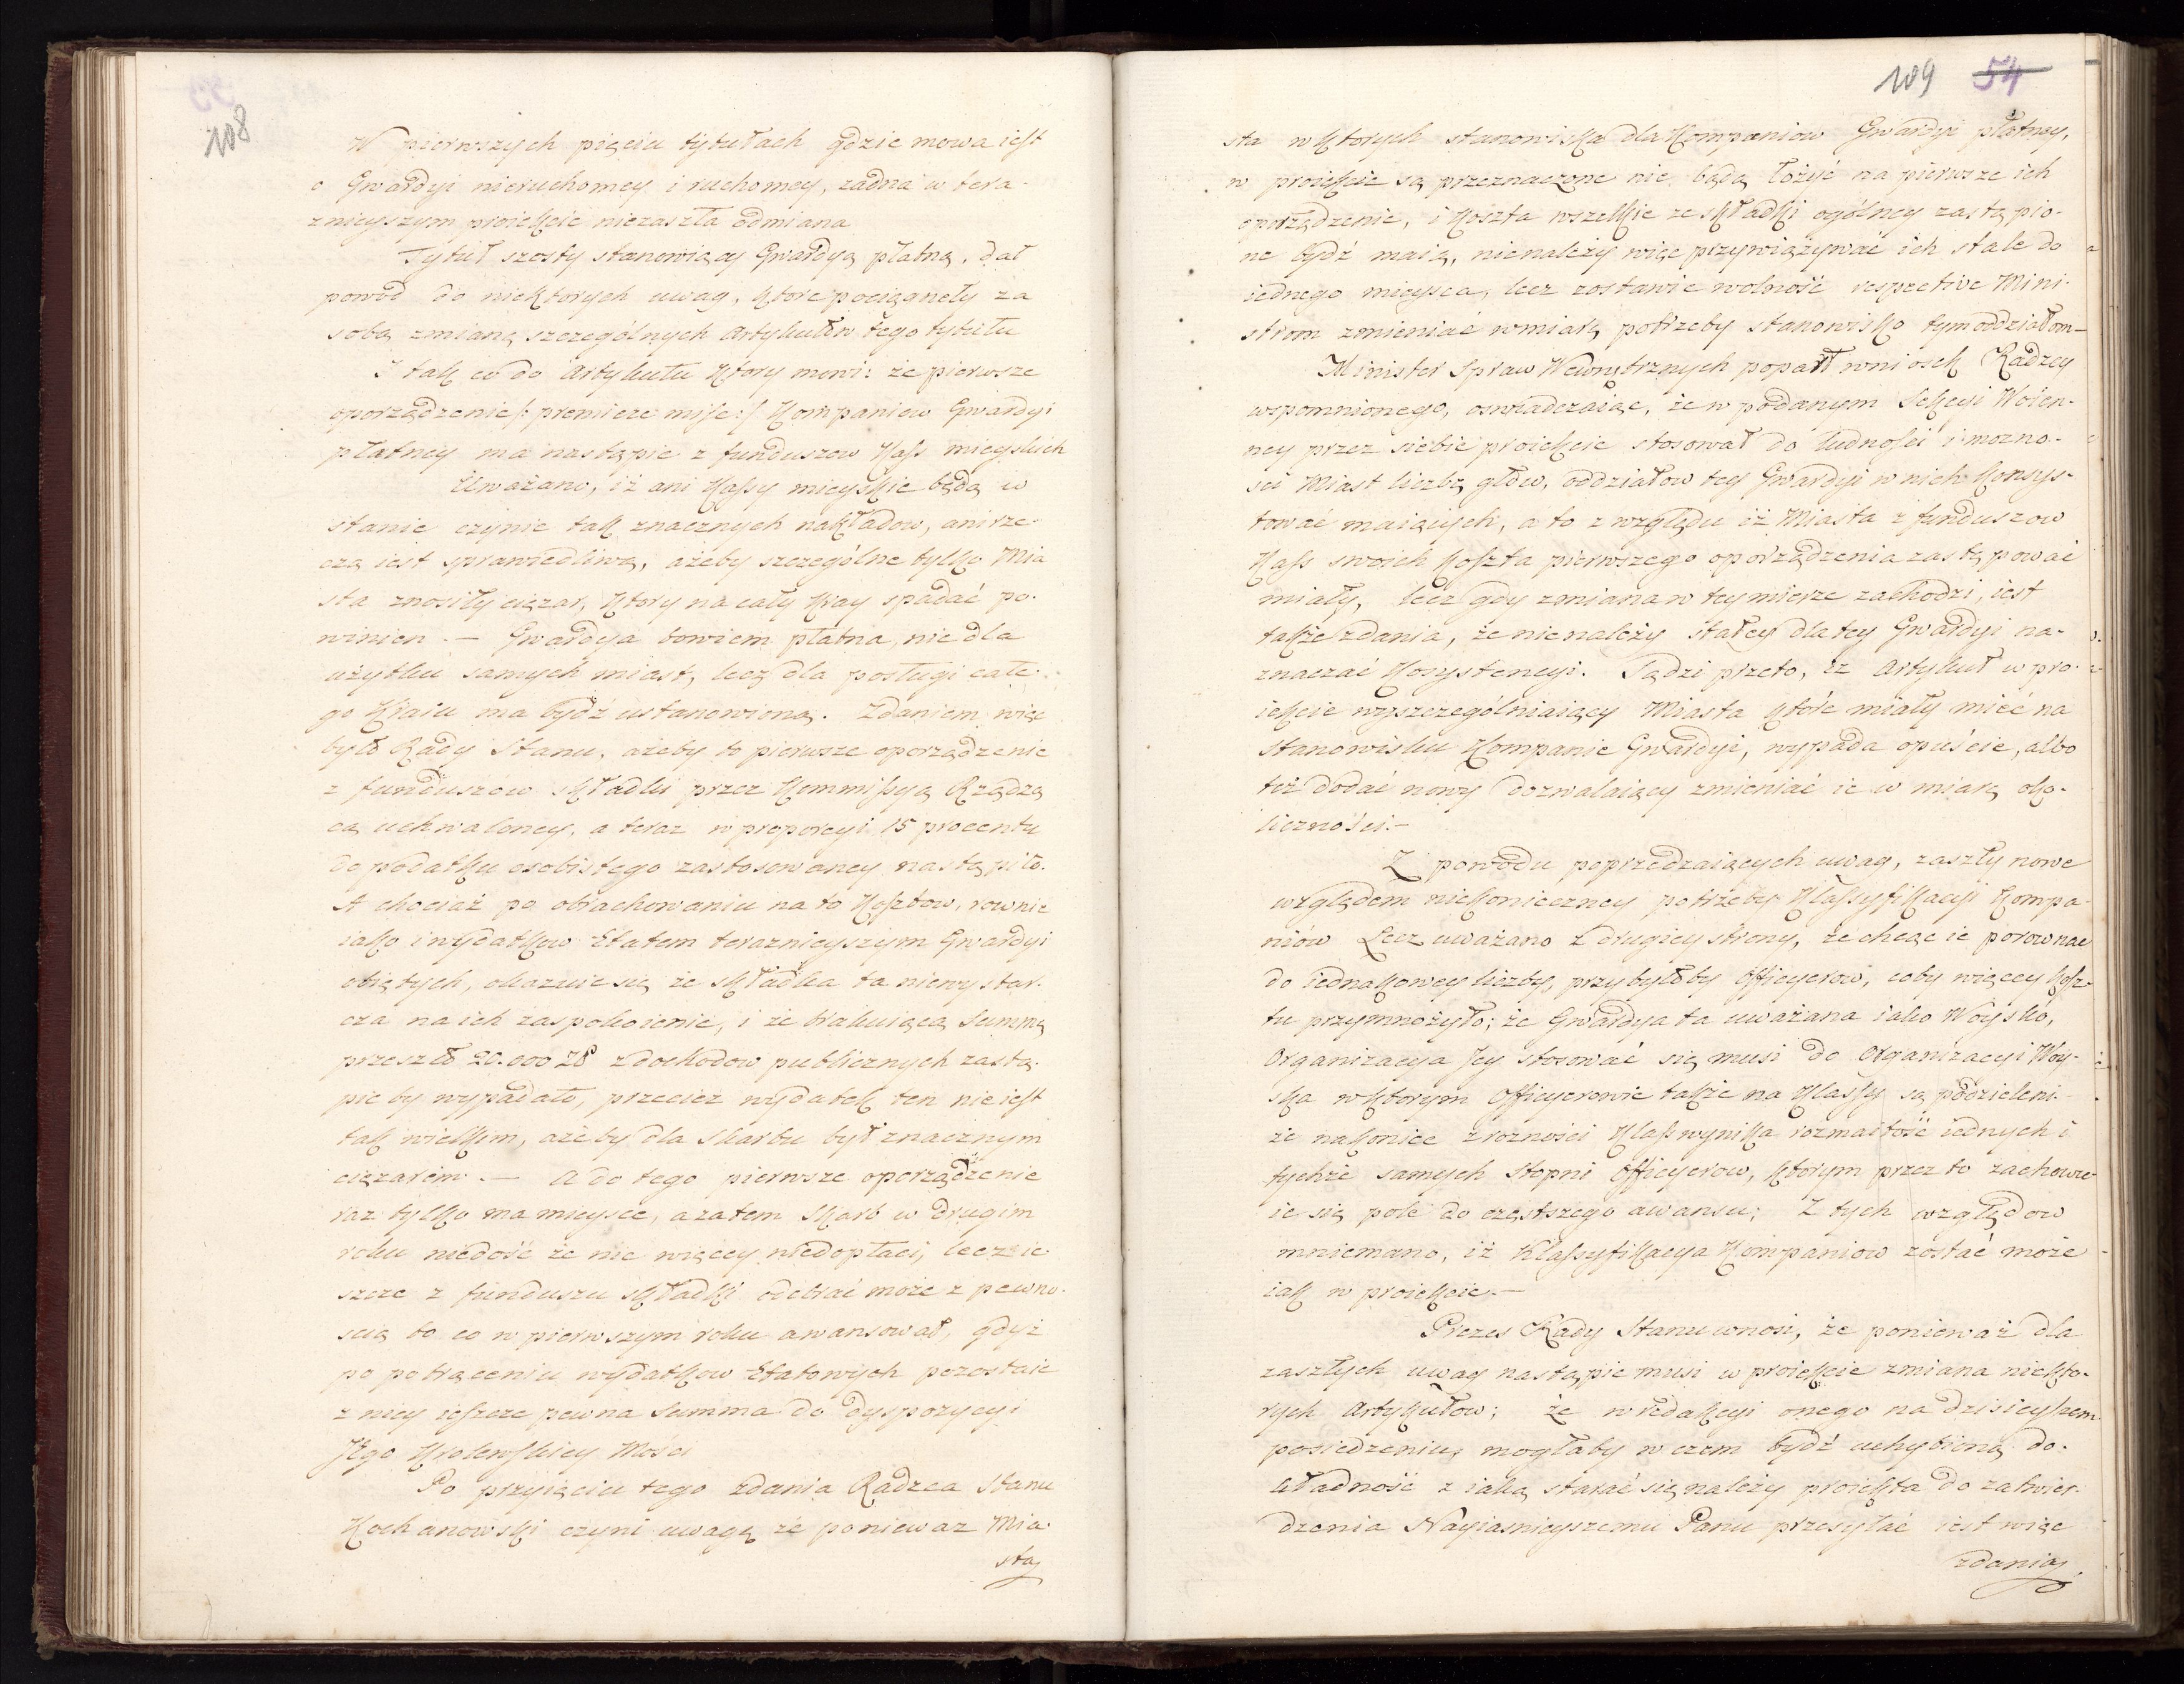 108
W pierwszych pięciu tytułach gdzie mowa iest
o Gwardyi nieruchomey i ruchomey, żadna w tera-
znieyszym proiekcie niezaszła odmiana
Tytuł szosty stanowiący Gwardyą płatną, dał
powod do niektorych uwag, ktore pociągnęły za
sobą zmianę szczególnych Artykułów tego tytułu
I tak co do Artykułu ktory mowi: że pierwsze
oporządzenie /: premiere mise :/ Kompaniow Gwardyi
płatney ma nastąpić z funduszow Kass mieyskich
Uważano, iż ani Kassy mieyskie będą w
stanie czynić tak znacznych nakładow, ani rze-
czą iest sprawiedliwą, ażeby szczególne tylko Mia
sta znosiły ciężar, ktory na cały Kray spadać po-
winien. — Gwardya bowiem płatna, nie dla
użytku samych miast, lecz dla posługi całe-
go Kraiu ma bydź ustanowioną. Zdaniem więc
było Rady Stanu, ażeby to pierwsze oporządzenie
z funduszów składki przez Kommissyą Rządzą
cą uchwaloney, a teraz w proporcyi 15 procentu
do podatku osobistego zastosowaney nastąpiło.
A chociaż po obrachowaniu na to kosztow, rownie
iako i wydatkow Etatem teraznieyszym Gwardyi
obiętych, okazuie się że składka ta niewystar-
cza na ich zaspokoienie, i że brakuiącą Summę
przeszło 20.000 Zł z dochodow publicznych zastą-
pić by wypadało, przecież wydatek ten nie iest
tak wielkim, ażeby dla Skarbu był znacznym
ciężarem. — A do tego pierwsze oporządzenie
raz tylko ma mieysce, a zatem Skarb w drugim
roku niedość że nic więcey niedopłaci, lecz ie-
szcze z funduszu składki odebrać może z pewno-
scią to co w pierwszym roku awansował, gdyż
po potrąceniu wydatkow Etatowych pozostaie
z niey ieszcze pewna Summa do dyspozycyi
Jego Krolewskiey Mości
Po przyięciu tego zdania Radzca Stanu
Kochanowski czyni uwagę że poniewaz Mia-
sta
109 54
sta w ktorych stanowiska dla Kompaniow Gwardyi płatney,
w proiekcie są przeznaczone nie będą łożyć na pierwsze ich
oporządzenie, i koszta wszelkie ze składki ogólney zastąpio-
ne bydź maią, nienależy więc przywiązywać ich stale do
iednego mieysca, lecz zostawić wolność respective Mini-
strom zmieniać w miarę potrzeby stanowisko tym oddziałom—
Minister Spraw Wewnętrznych poparł wniosek Radzcy
wspomnionego, oswiadczaiąc, że w podanym Sekcyi Woien-
ney przez siebie proiekcie stosował do ludności i mozno-
sci Miast liczbę głow, oddziałow tey Gwardyi w nich konsys-
tować maiących, a to z względu iż Miasta z funduszow
Kass swoich koszta pierwszego oporządzenia zastępować
miały, lecz gdy zmiana w tey mierze zachodzi, iest
także zdania, że nienależy stałey dla tey Gwardyi na-
znaczać Kosystencyi. Sądzi przeto, iż Artykuł w pro-
iekcie wyszczególniaiący Miasta które miały mieć na
stanowisku Kompanie Gwardyi, wypada opuścić, albo
też dodać nowy dozwalaiący zmieniać ie w miarę oko-
liczności.—
Z powodu poprzedzaiących uwag, zaszły nowe
względem niekonieczney potrzeby Klassyfikacyi Kompa-
niów Lecz uważano z drugiey strony, że chcąc ie porownać
do iednakowey liczby, przybyłoby Officyerow, coby więcey kosz-
tu przymnożyło; że Gwardya ta uważana iako Woysko,
Organizacya Jey stosować się musi do Organizacyi Woy-
ska w ktorym Officyerowie także na Klassy są podzieleni
że nakoniec z rożności Klass wynika rozmaitość iednych i
tychże samych Stopni Officyerow, ktorym przez to zachowu-
ie się pole do częstszego awansu; Z tych względow
mniemano, iż Klassyfikacya Kompaniow zostać może
iak w proiekcie.—
Prezes Rady Stanu wnosi, że ponieważ dla
zaszłych uwag nastąpić musi w proiekcie zmiana niekto-
rych Artykułow; że w redakcyi onego na dzisieyszem
posiedzeniu, mogłaby w czem bydź uchybioną do-
kładność z iaką starać się należy proiekta do zatwier-
dzenia Nayiasnieyszemu Panu przesyłać iest więc
zdania,